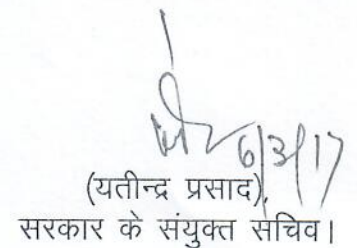 6/3/17
(यतीन्द्र प्रसाद),
सरकार के संयुक्त सचिव।